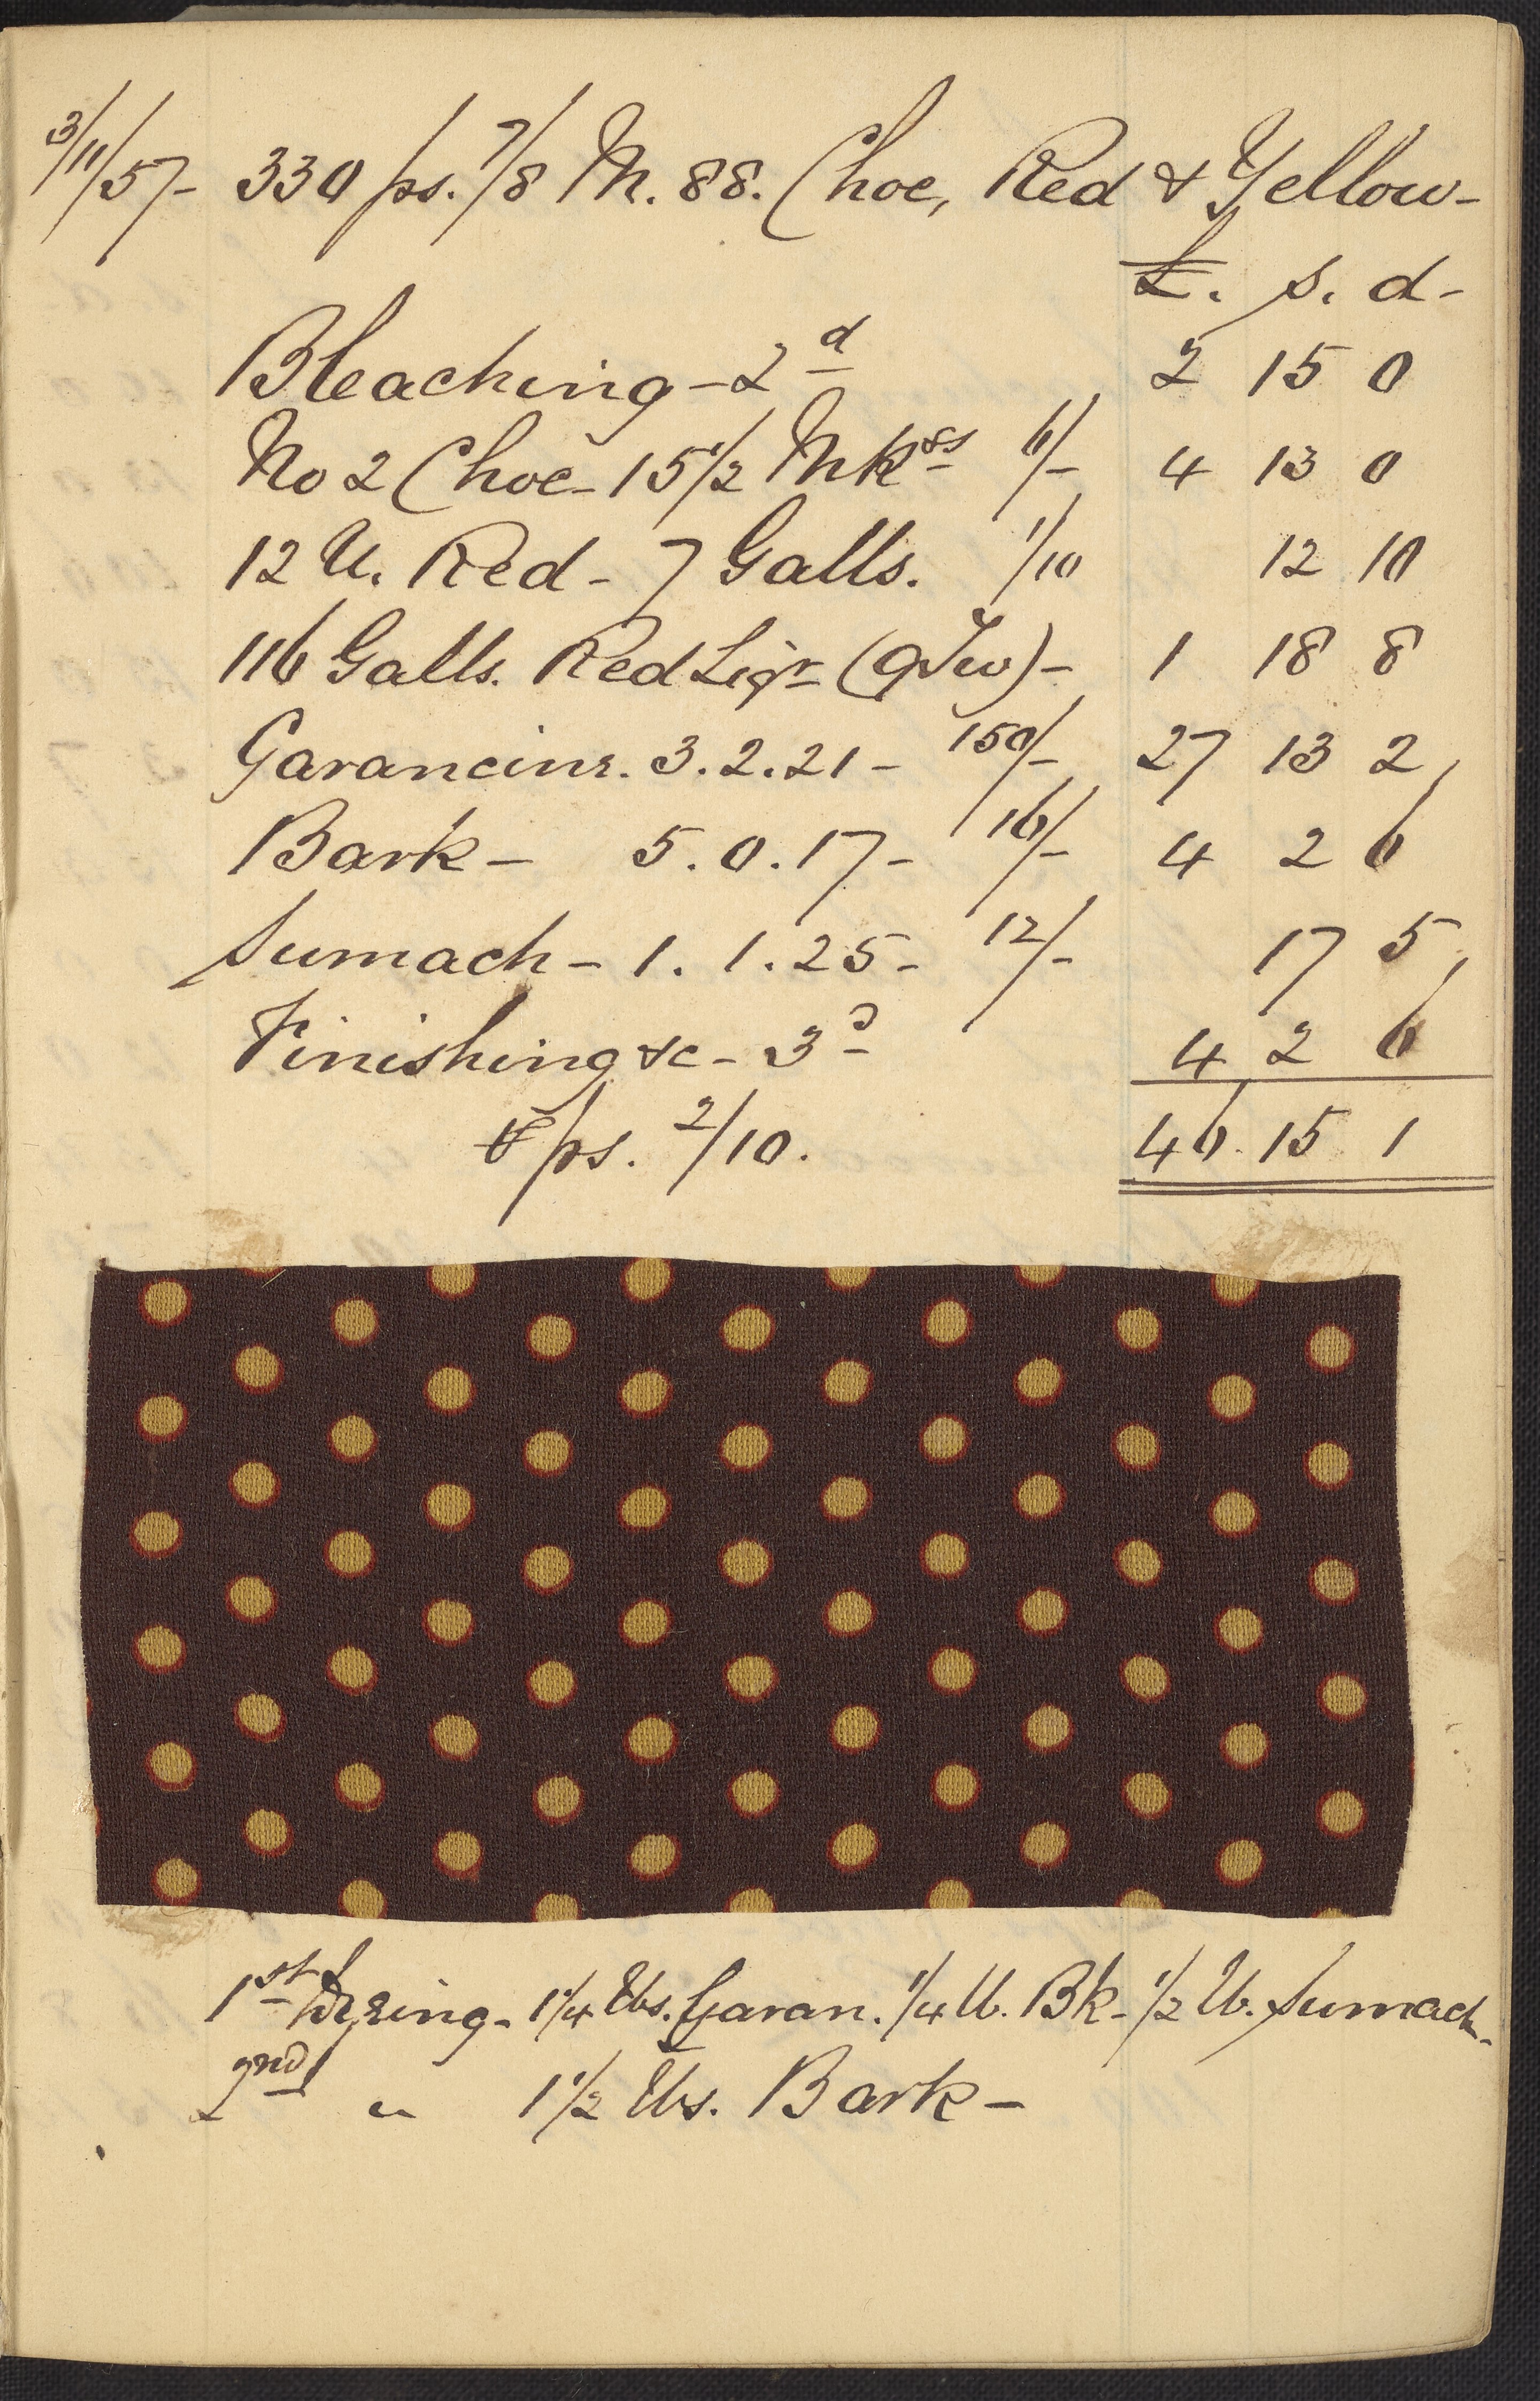 3/11/57- 330 ps. 7/8 M. 88. Choc, Red & Yellow-
£. s. d-
Bleaching - 2d 2 15 0
No 2 Choc - 15 1/2 Mkrs 6/- 4 13 0
12 U. Red - 7 Galls. 1/10 12 10
116 Galls. Red Liqr (9Tw) - 1 18 8
Garancine. 3.2.21 - 150/- 27 13 2
Bark - 5.0.17 - 16/- 4 2 6
Sumach - 1.1.25 - 12/- 17 5
Finishing &c - 3d 4 2 6
⅌ ps. 2/10. 46. 15 1
1st Dyeing - 1 1/4 lbs. Garan. 1/4 lb. Bk - 1/2 lb. Sumach.
2nd " 1 1/2 lbs. Bark -